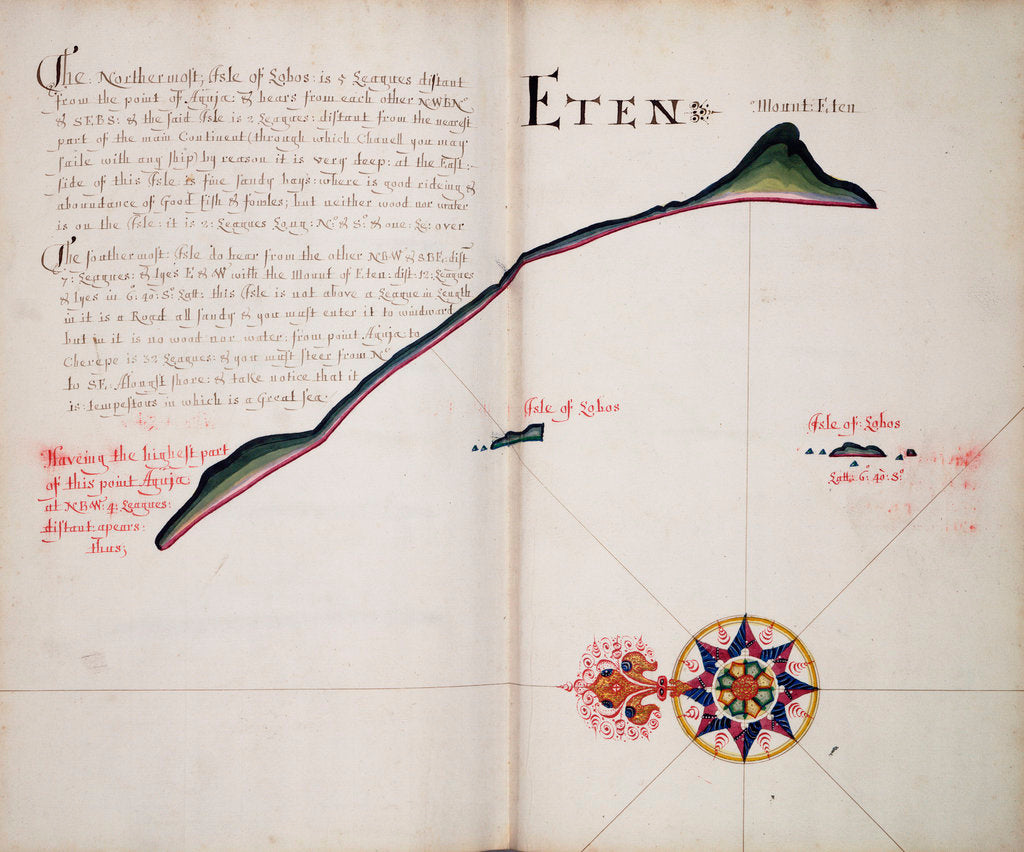 The Northermost; Isle of Lobos: is 5 Leagues distant
from the point of Aguja: & bears from each other NWBNo
& SEBS: & the said Isle is 2 Leagues: distant from the nearest
part of the main Continent (through which Chanell you may
saile with any ship) by reason it is very deep: at the East:
side of this Isle is fine sandy bays: where is good rideing &
aboundance of Good fish & foules; but neither wood nor water
is on the Isle: it is 2: Leagues Long: No: & So: & one: Le: over
The southermost: Isle do bear from the other NBW & SBE: dist
7: Leagues: & lyes E & W with the Mount of Eten: dist: 12: Leagues
& lyes in 6: 40: So: Latt: this Isle is not above a League in Length
in it is a Road all sandy & you must enter it to windward
but in it is no wood nor water: from point Aguja to
Cherepe is 32 Leagues: & you must steer from No
to SE: Alongst shore: & take notice that it
is: tempestous in which is a Great sea:
Haveing the highest part
of this point Aguja
at NBW: 4: Leagues:
distant: apears:
thus;
ETEN
Mount: Eten
Isle of Lobos
Isle of: Lobos
Latt: 6: 40: So: